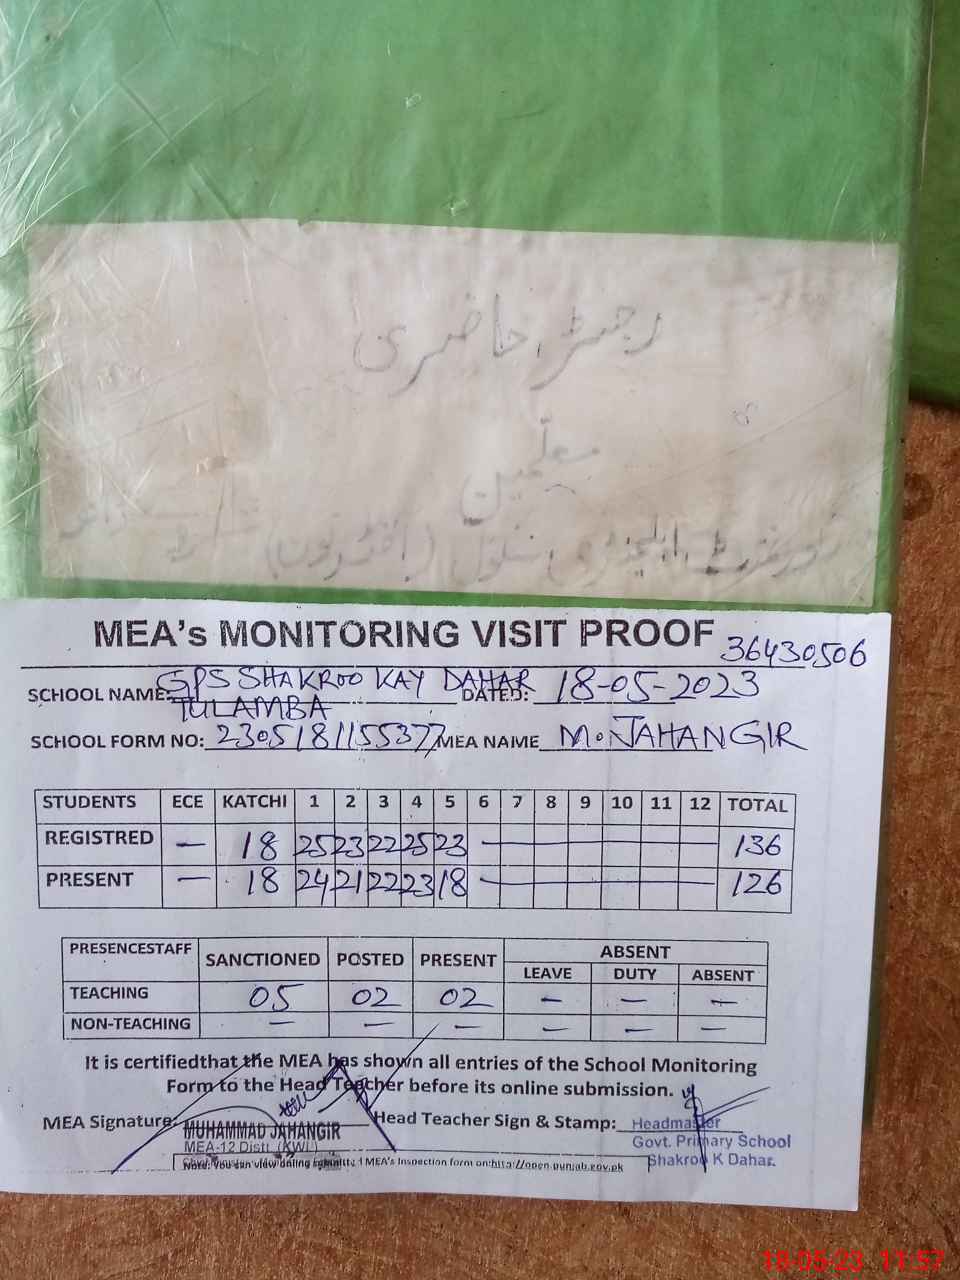 رجسٹر حاضری
معلمین
گورنمنٹ ایلیمنٹری سکول
MEA's MONITORING VISIT PROOF 36430506
SCHOOL NAME: GPS SHAKROO KAY DAHAR DATED: 18-05-2023
TULAMBA
SCHOOL FORM NO: 2305181155377 MEA NAME M. JAHANGIR
STUDENTS ECE KATCHI 1 2 3 4 5 6 7 8 9 10 11 12 TOTAL
REGISTRED — 18 25 23 22 25 23 — 136
PRESENT — 18 24 21 22 23 18 — 126
PRESENCESTAFF SANCTIONED POSTED PRESENT ABSENT
LEAVE DUTY ABSENT
TEACHING 05 02 02 — — —
NON-TEACHING — — — — — —
It is certifiedthat the MEA has shown all entries of the School Monitoring
Form to the Head Teacher before its online submission.
MEA Signature: Head Teacher Sign & Stamp:
MUHAMMAD JAHANGIR
MEA-12 Distt. (KWL)
Headmaster
Govt. Primary School
Shakroo K Dahar.
Note: You can view online submitted MEA's Inspection form on:http://open.punjab.gov.pk
18-05-23 11:57